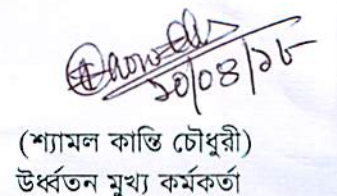 ২০/০৪/১৮
(শ্যামল কান্তি চৌধুরী)
উর্ধ্বতন মুখ্য কর্মকর্তা